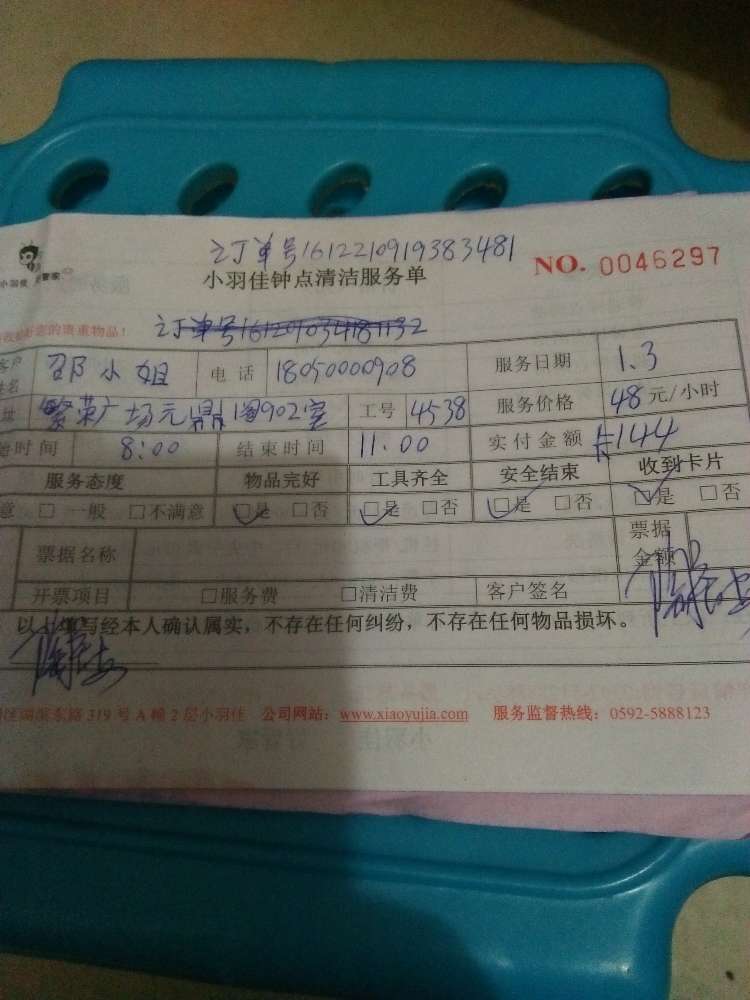 订单号1612210919383481
小羽佳 管家
小羽佳钟点清洁服务单
NO. 0046297
您的贵重物品！ 订单号161201034181132
客户姓名 邵小姐 电话 18050000908 服务日期 1.3
址 繁荣广场元鼎阁902室 工号 4538 服务价格 48元/小时
始时间 8:00 结束时间 11.00 实付金额 卡144
服务态度 物品完好 工具齐全 安全结束 收到卡片
意 □一般 □不满意 □是 □否 □是 □否 □是 □否 □是 □否
票据名称 票据金额
开票项目 □服务费 □清洁费 客户签名
以上填写经本人确认属实，不存在任何纠纷，不存在任何物品损坏。
区湖滨东路319号A幢2层小羽佳 公司网站：www.xiaoyujia.com 服务监督热线：0592-5888123